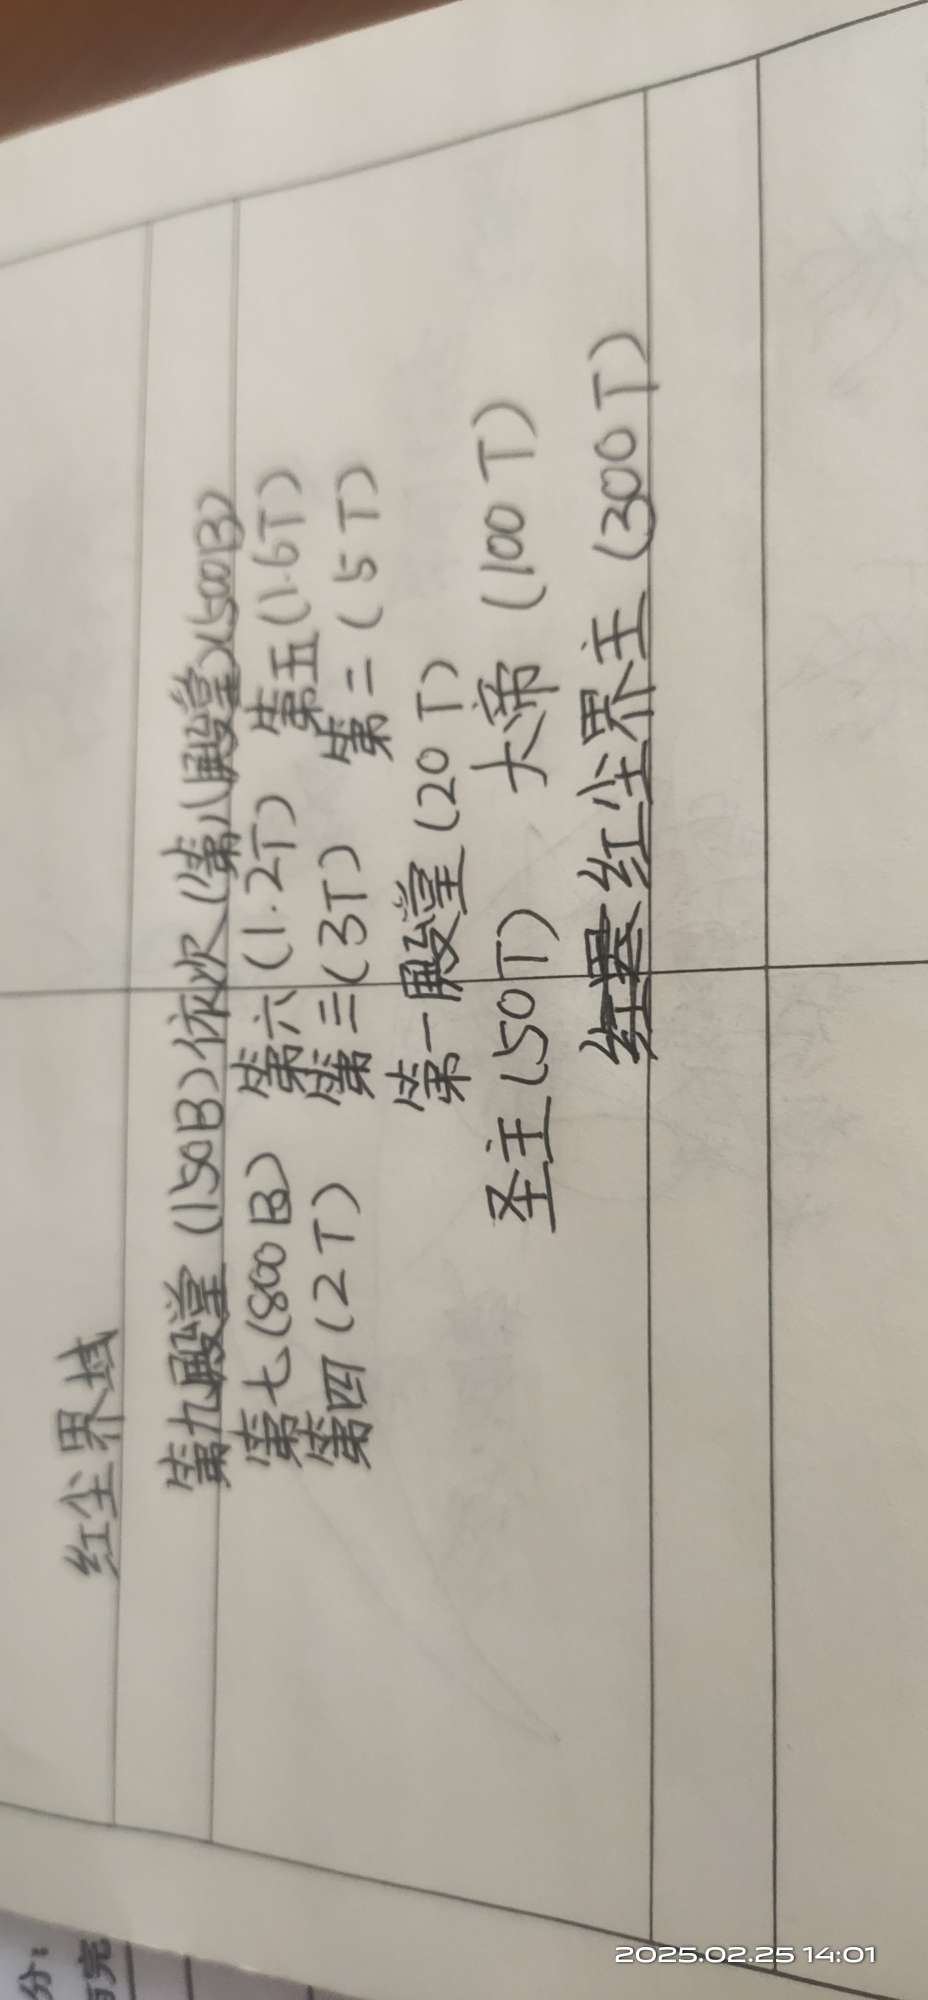 红尘界域
第九殿堂(150B)依次(第八殿堂)(500B)
第七(800B) 第六(1.2T) 第五(1.6T)
第四(2T) 第三(3T) 第二(5T)
第一殿堂(20T)
圣主(50T) 大帝(100T)
红尘界主(300T)
分:
2025.02.25 14:01